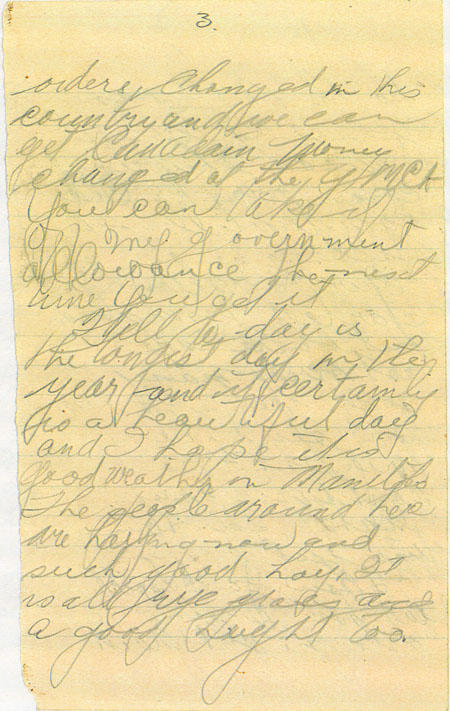 3.
orders changed in this
country and we can
get Canadain money
changed at the YMCA
You can take it
off my government
allowance the next
time you get it
Well to day is
the longest day in the
year and it certainly
is a beautiful day
and I hope it is
good weather in Manitoba
The people around here
are haying now and
such good hay. It
is all rye grass and
a good height too.